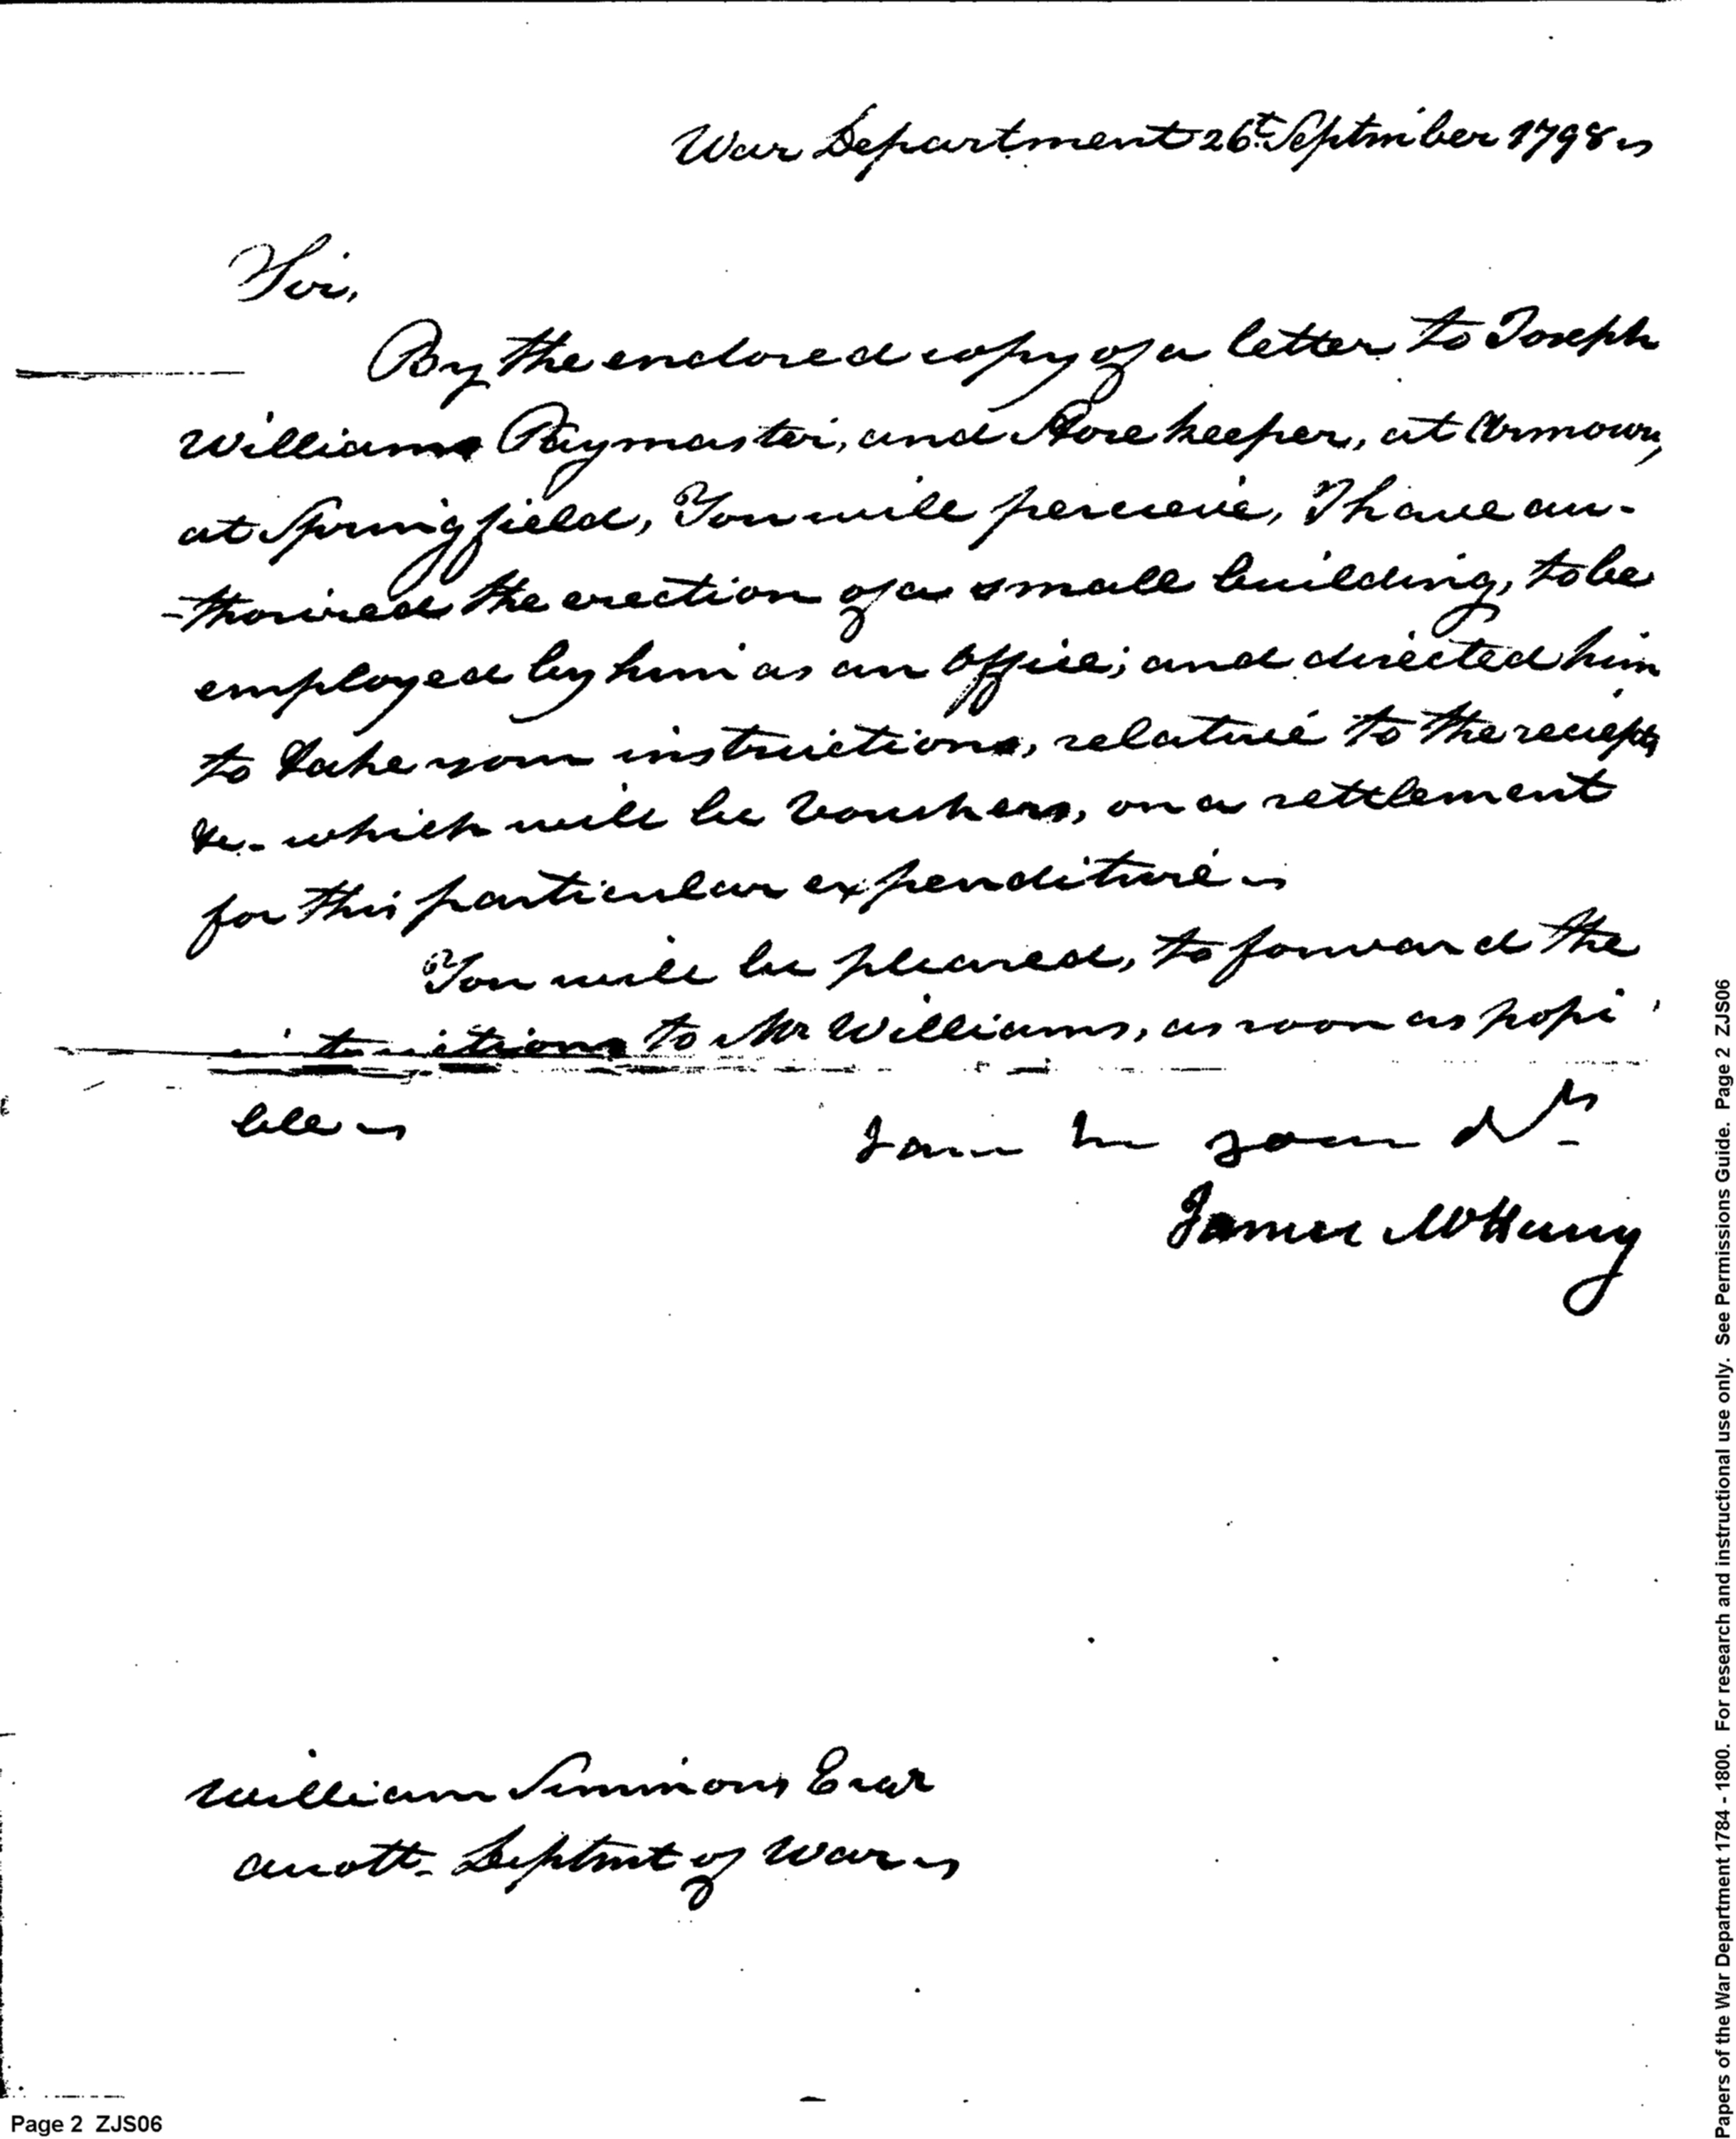 War Department 26t. September 1798
Sir,
By the enclosed copy of a letter to Joseph
Williams Paymaster, and Store keeper, at Armoury,
at Springfield, You will perceive, I have au-
-thorised the erection of a small building, to be
employed by him as an office; and directed him
to take your instructions, relative to the reciepts
&c. which will be Vouchers, on a settlement
for this particular expenditure
You will be pleased, to forward the
instructions to Mr Williams, as soon as possi
ble
I am Sir your
James McHenry
William Simmons Esqr
Deptmt of War
Page 2 ZJS06
Papers of the War Department 1784 - 1800. For research and instructional use only. See Permissions Guide. Page 2 ZJS06